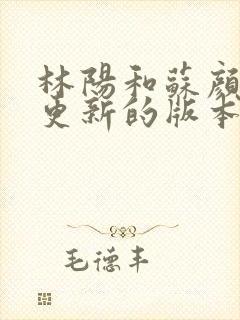 林陽和蘇顔
更新的版本
毛德丰